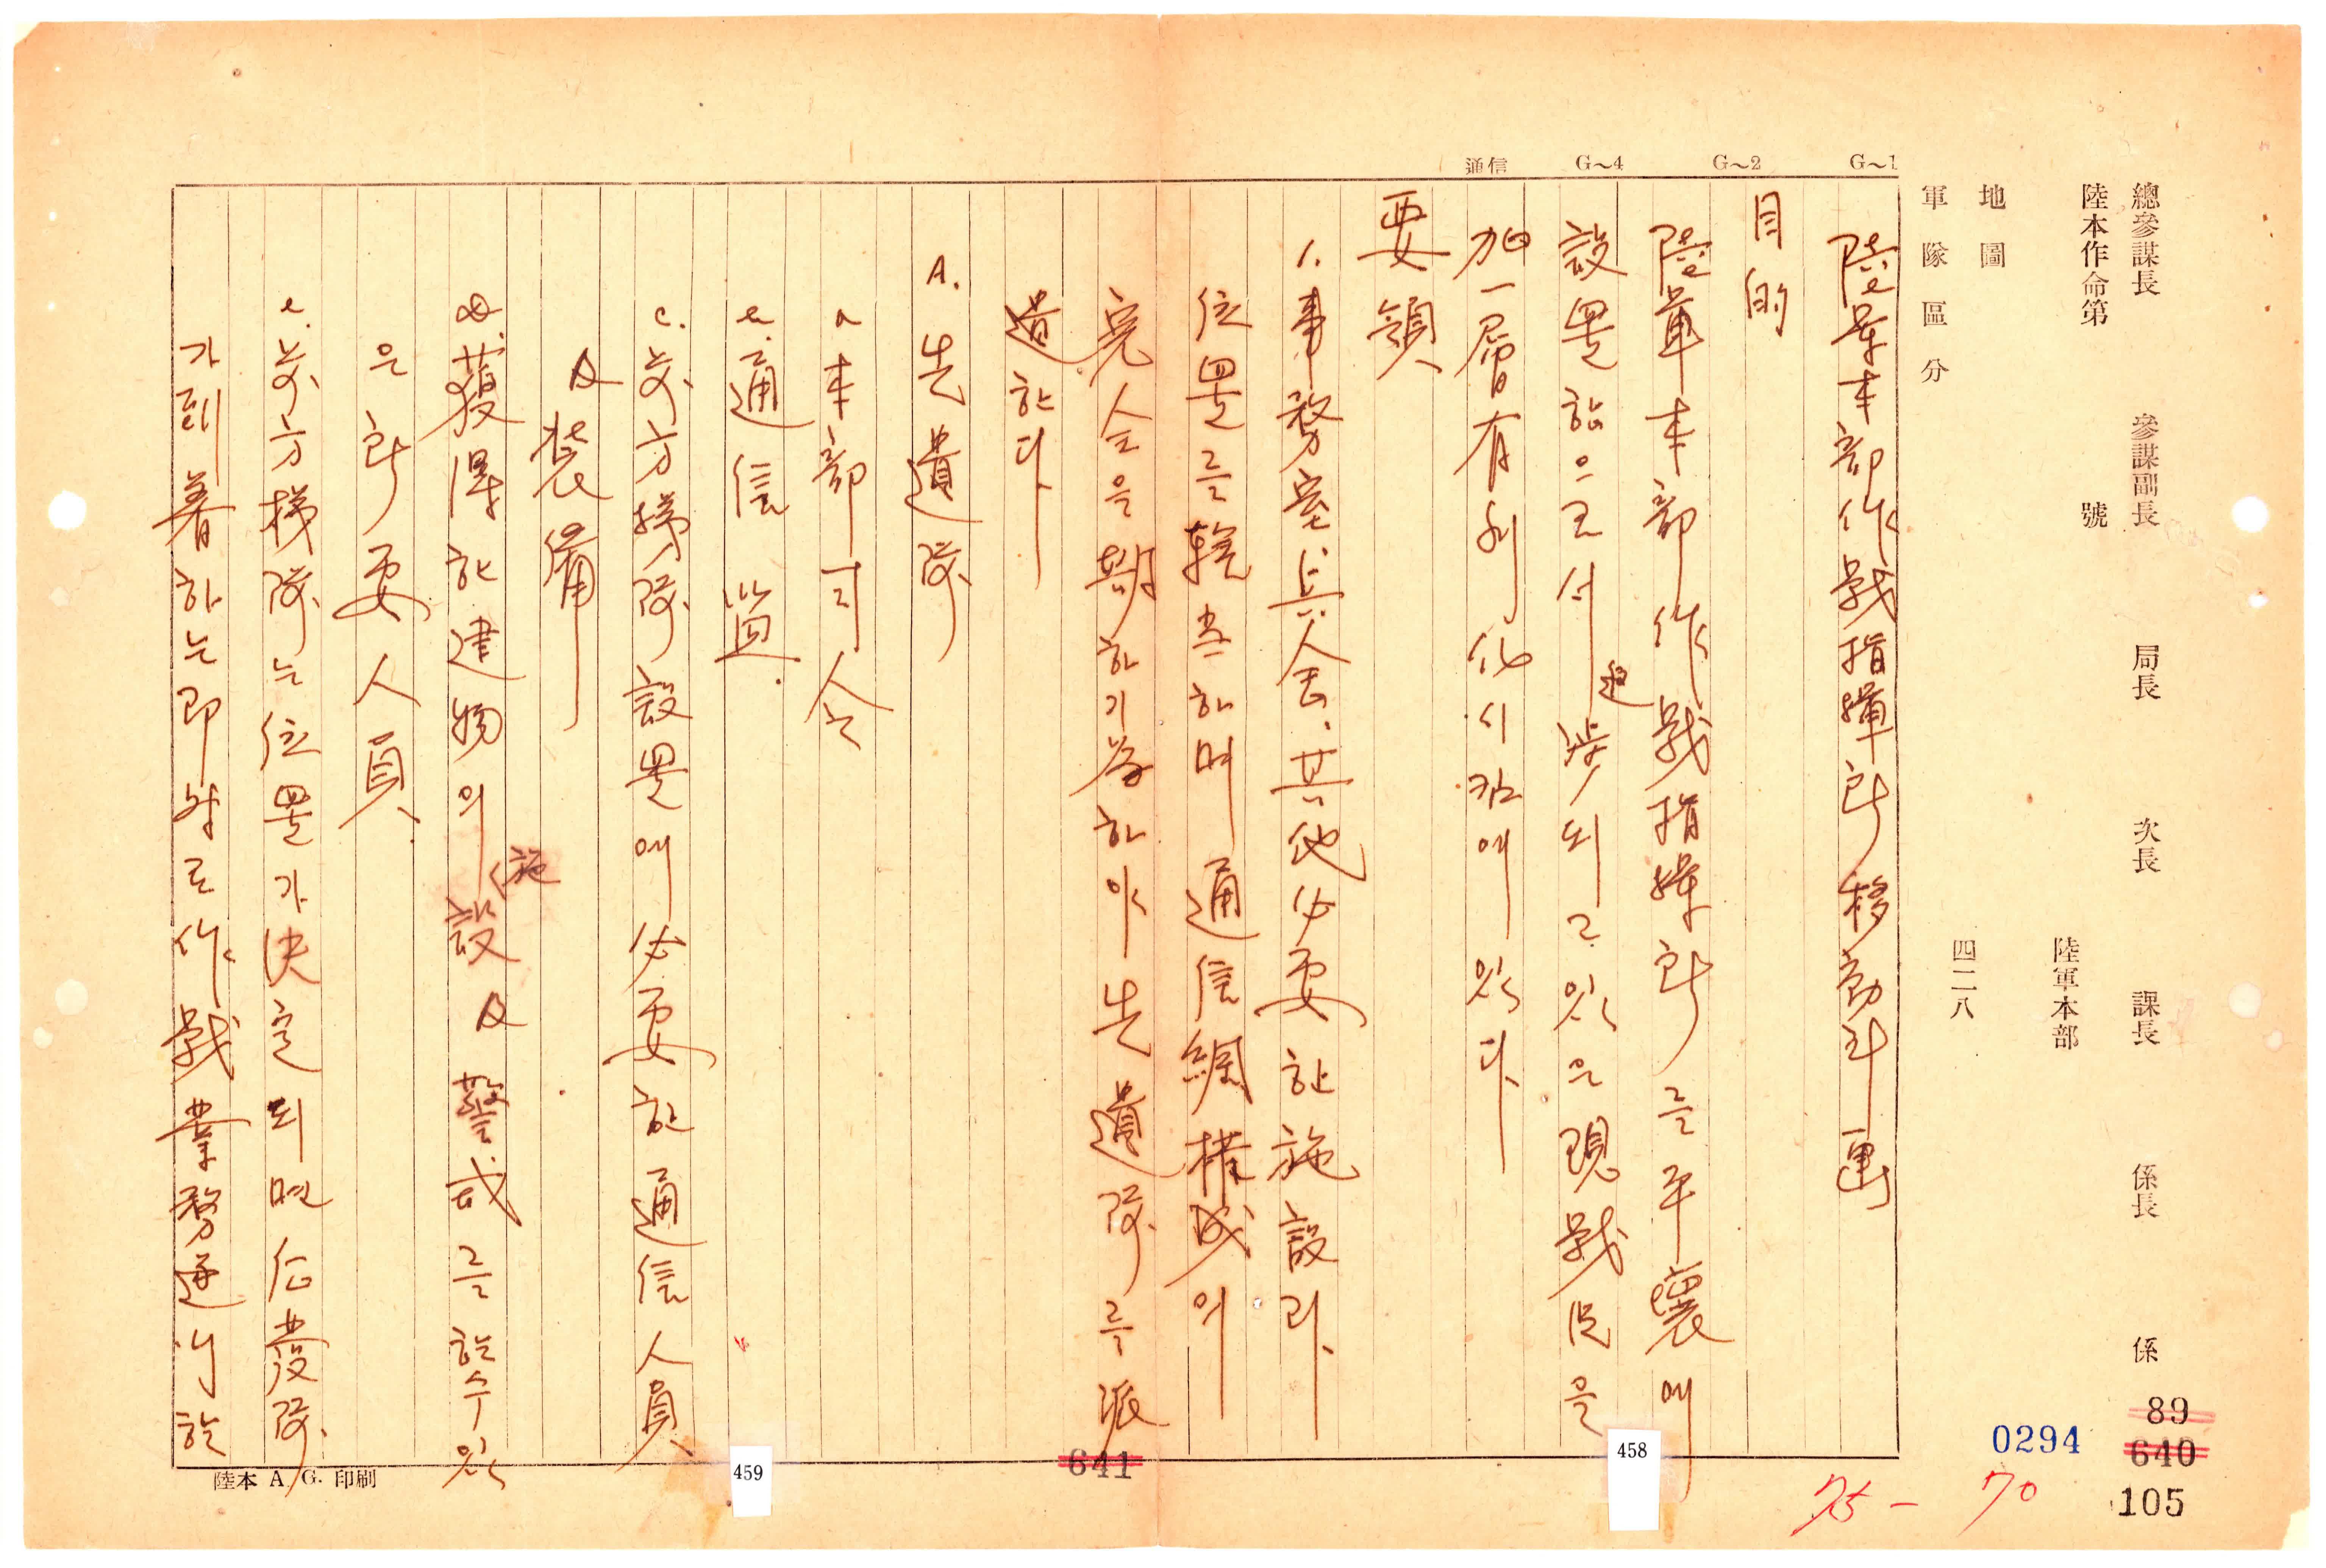 總參謀長 參謀副長 局長 次長 課長 係長 係
陸本作命第 號
陸軍本部
地圖
四二八
軍隊區分
G~1
G~2
G~4
通信
陸軍本部作戰指揮所移動計画
目的
陸軍本部作戰指揮所를平壤에
設置함으로서 進涉되고있은現戰況을
加一層有利化시킴에있다
要領
1. 事務室兵舍、其他必要한施設과
位置를轄當하며通信網構成의
完全을期하기爲하야先遣隊를派
遣한다
A. 先遣隊
a 本部司令
b. 通信監
c. 前方梯隊設置에必要한通信人員
及裝備
d. 獲得한建物의施設及警戒를할수있
은所要人員
e. 前方梯隊는位置가決定되면后發隊
가到着하는即時로作戰業務遂行할
陸本 A.G. 印刷
459
641
458
0294
89
640
105
75- 70